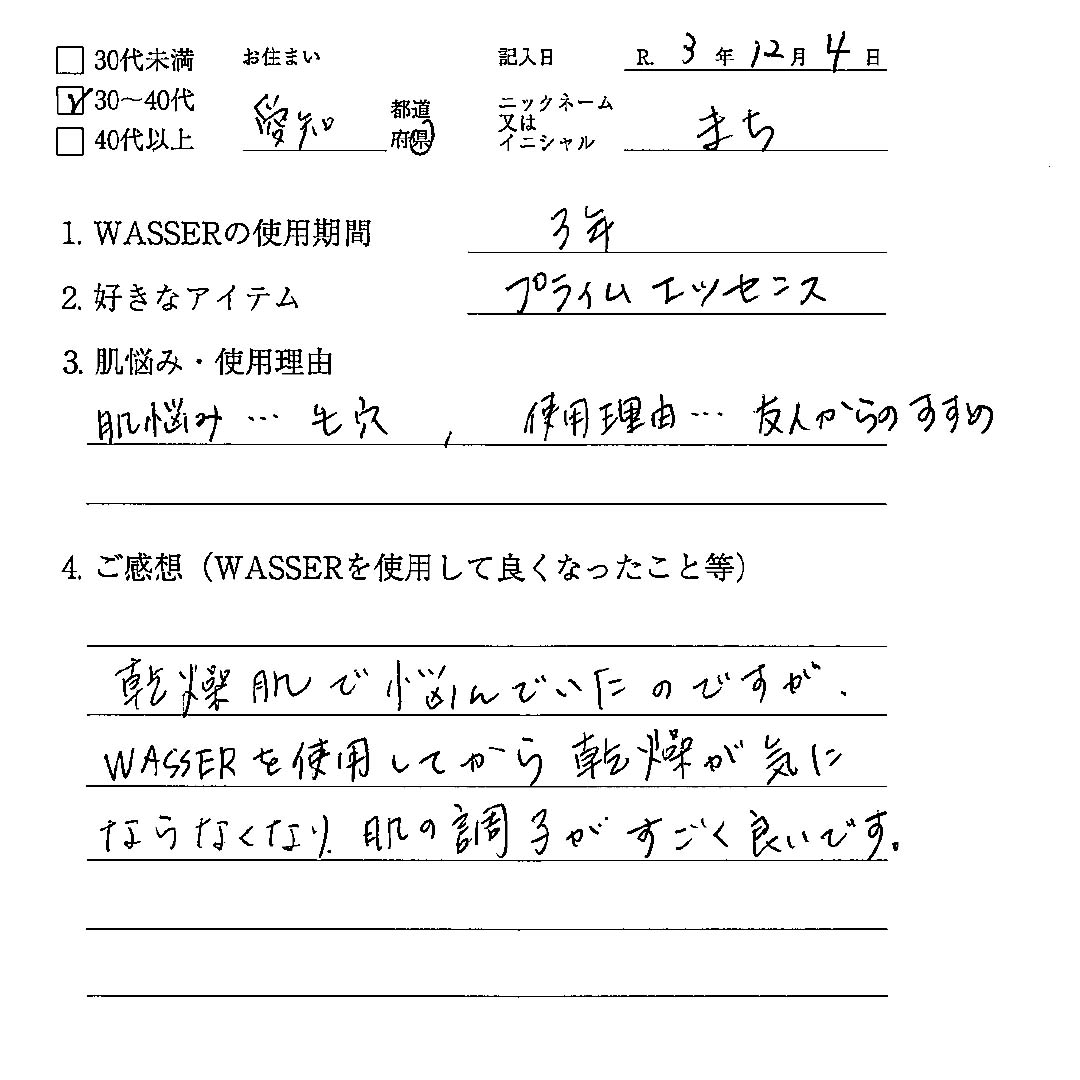 30代未満 お住まい 記入日 R. 3 年 12 月 4 日
30〜40代 愛知 都道府県 ニックネーム又はイニシャル まち
40代以上
1. WASSERの使用期間 3年
2. 好きなアイテム プライムエッセンス
3. 肌悩み・使用理由
肌悩み… 毛穴 , 使用理由… 友人からのすすめ
4. ご感想（WASSERを使用して良くなったこと等）
乾燥肌で悩んでいたのですが、
WASSERを使用してから乾燥が気に
ならなくなり、肌の調子がすごく良いです。